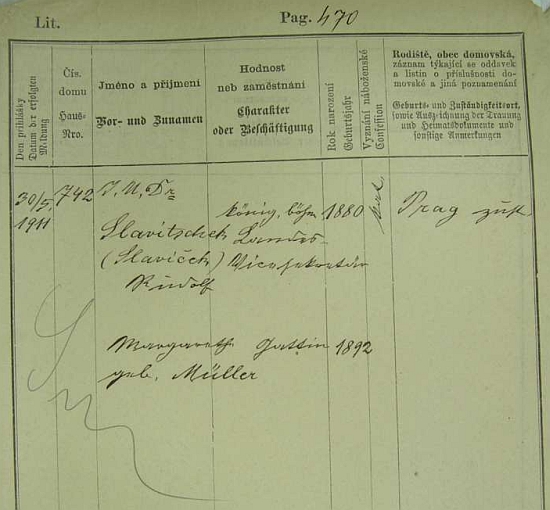 Lit.
Pag. 470
Den přihlášky
Datum der erfolgten
Meldung
Čís.
domu
Haus-
Nro.
Jméno a příjmení
Vor- und Zunamen
Hodnost
neb zaměstnání
Charakter
oder Beschäftigung
Rok narození
Geburtsjahr
Vyznání náboženské
Confession
Rodiště, obec domovská,
záznam týkající se oddavek
a listin o příslušnosti do-
movské a jiná poznamenání
Geburts- und Zuständigkeitsort,
sowie Aufzeichnung der Trauung
und Heimatsdokumente und
sonstige Anmerkungen
30/5 1911
742
J. U. Dr
Slavitschek
(Slaviček)
Rudolf
König. böhm
Landes-
Vicesekretär
1880
Prag zust
Margarethe Gattin 1892
geb. Müller